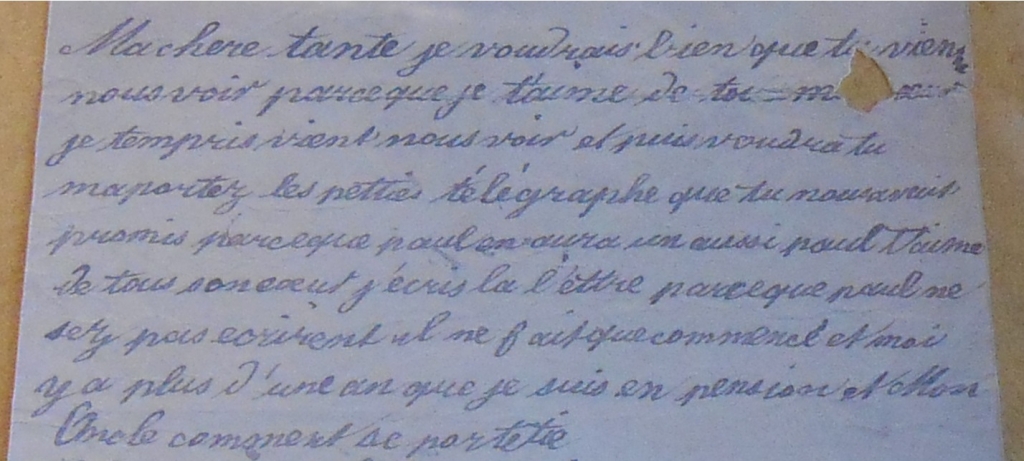 Ma chere tante je voudrais bien que tu vienn
nous voir parceque je t'aime de tou
je tempris vient nous voir et puis voudra tu
maportez les petties télégraphe que tu nousavait
promis parceque paul en aura un aussi paul t'aime
de tous son cœur j'écris la l'éttre parceque paul ne
sez pas ecrirent il ne fait que commencé et moi
y a plus d'une an que je suis en pension et Mon
Oncle comment se portetie